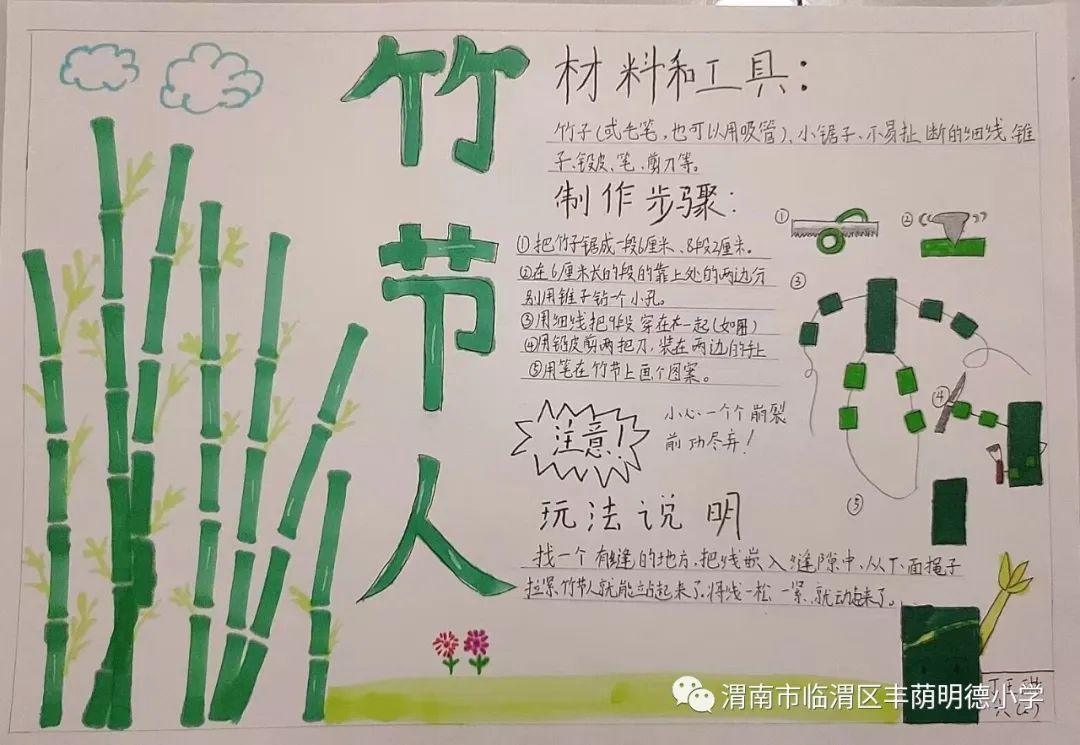 竹节人
材料和工具：
竹子(或毛笔,也可以用吸管)、小锯子、不易扯断的细线、锥
子、铅皮、笔、剪刀等。
制作步骤：
①把竹子锯成一段6厘米、8段2厘米。
②在6厘米长的段的靠上处的两边分
别用锥子钻一个小孔。
③用细线把9段穿在一起(如图)
④用铅皮剪两把刀,装在两边的手上
⑤用笔在竹节上画个图案。
① ②
③
④
⑤
注意!
小心一个个崩裂
前功尽弃!
玩法说明
找一个有缝的地方,把线嵌入缝隙中,从下面绳子
拉紧,竹节人就能站起来了.将线一松一紧,就动起来了。
六(2)
渭南市临渭区丰荫明德小学